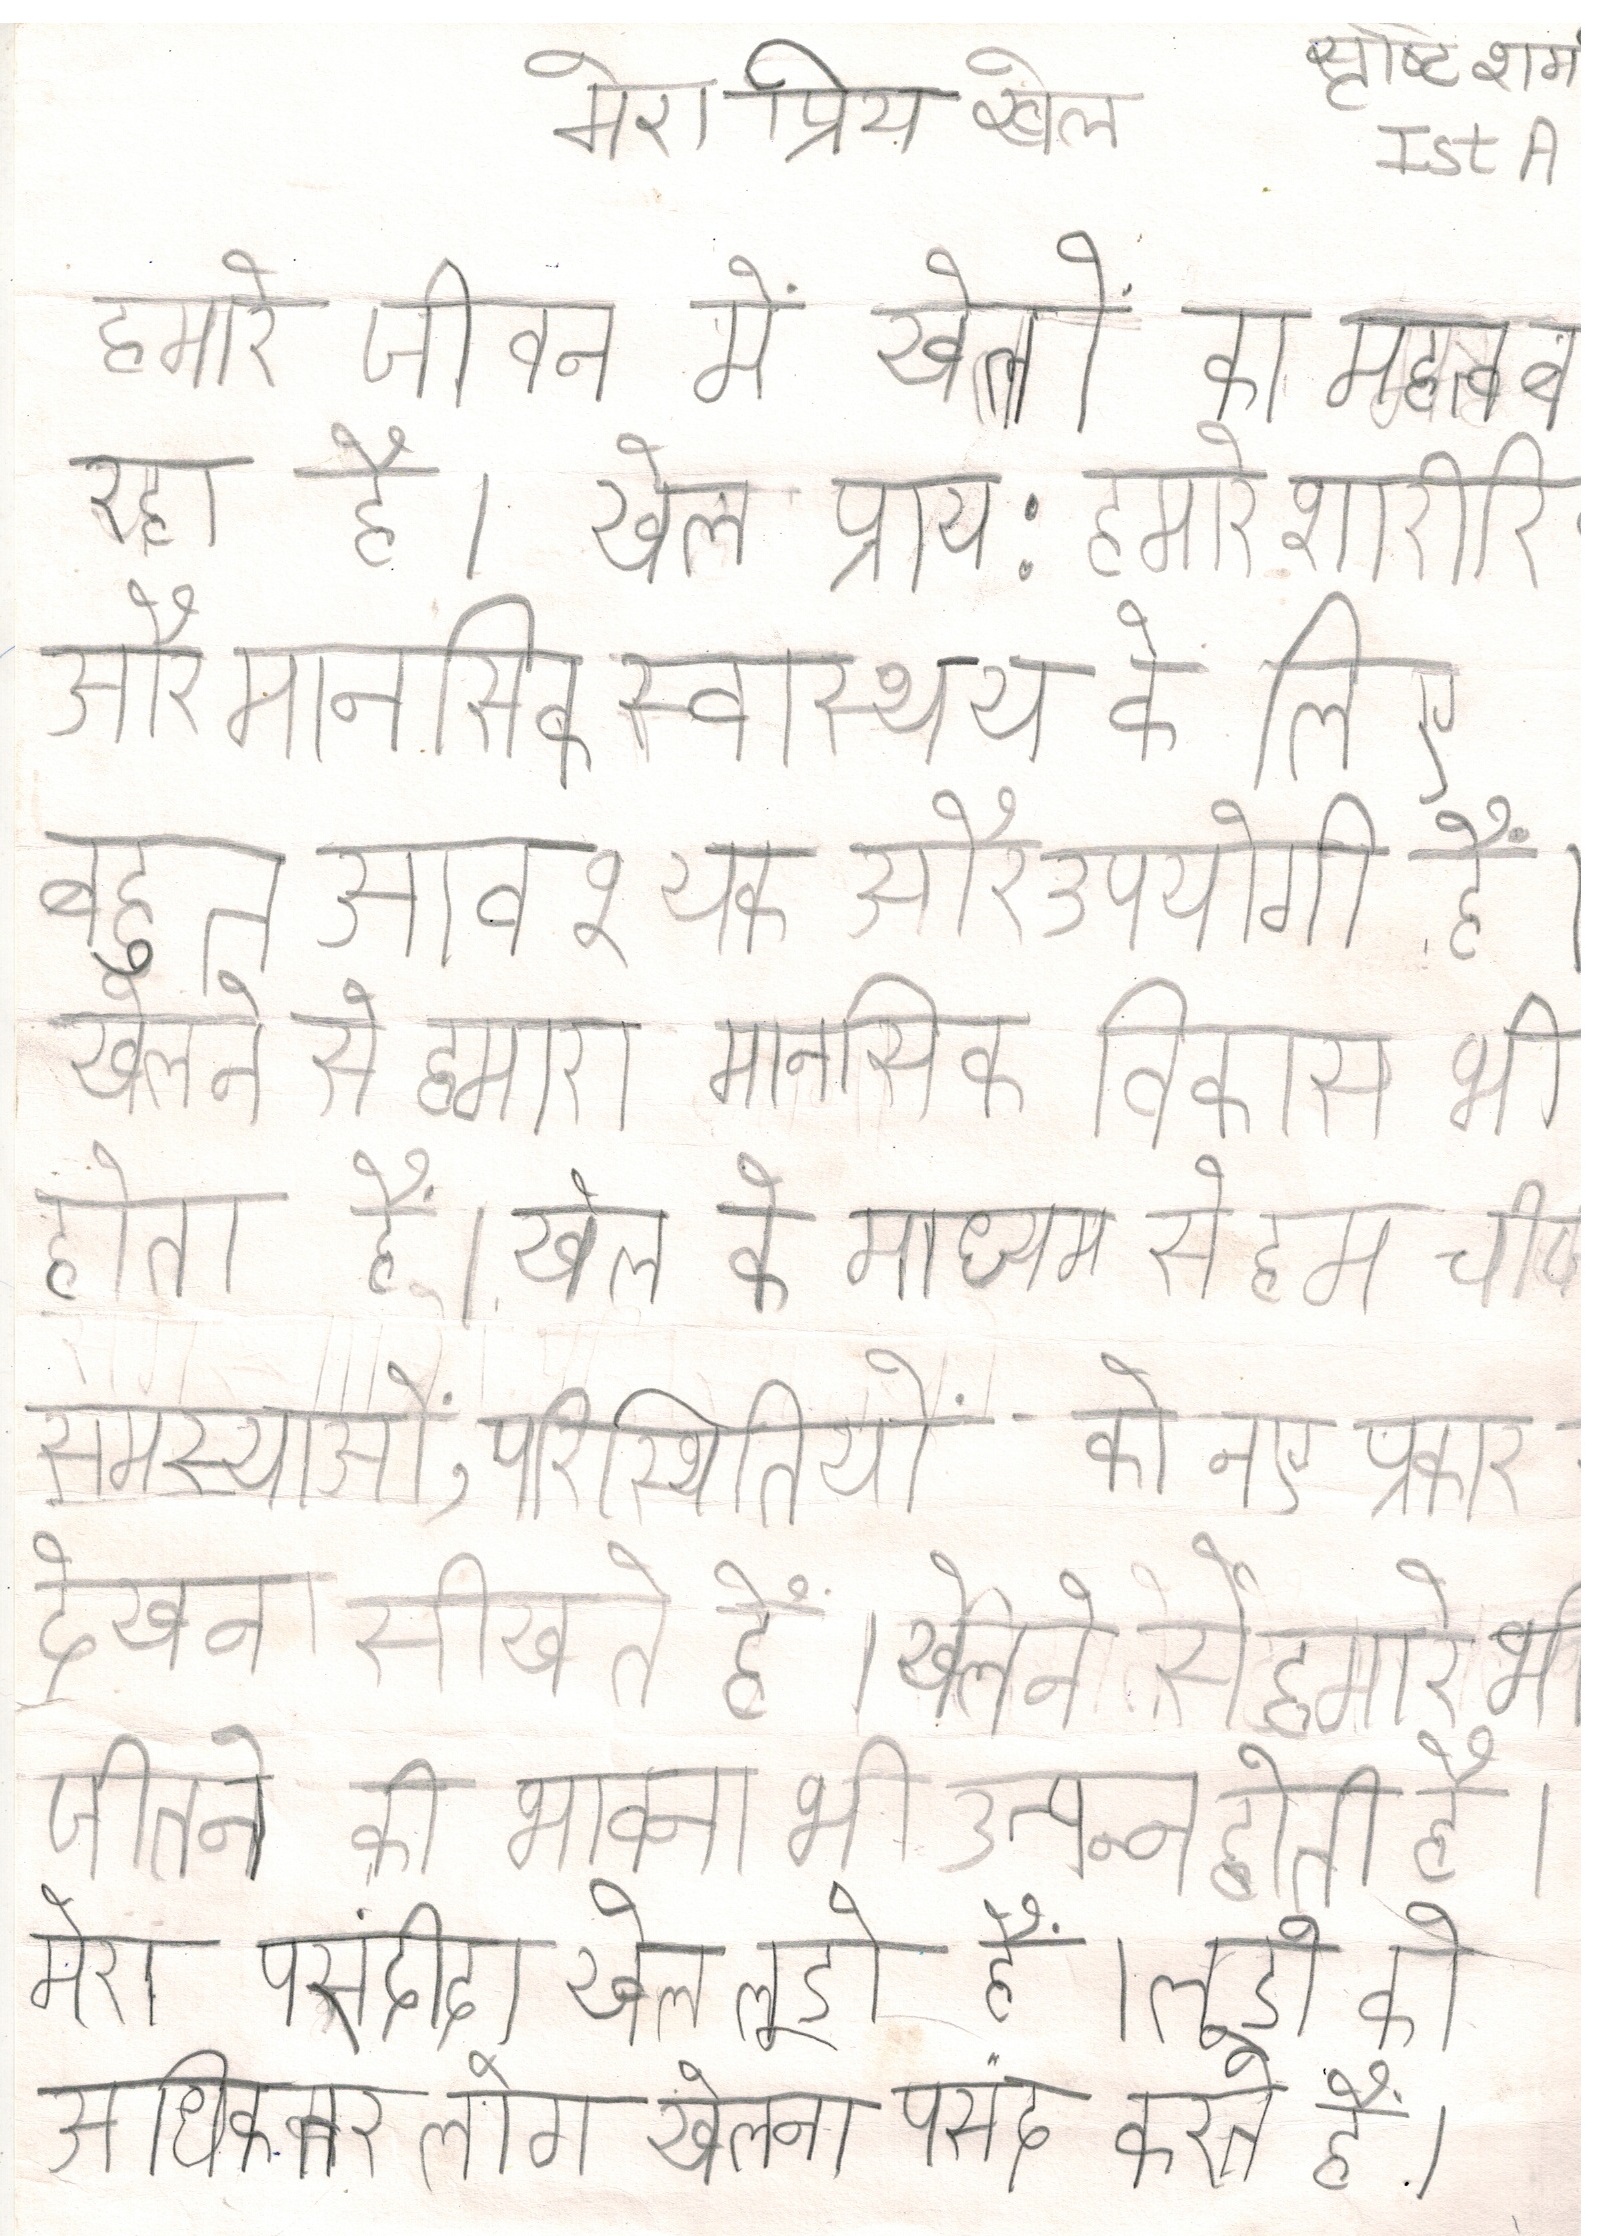 मेरा प्रिय खेल
सृष्टि शर्मा
Ist A
हमारे जीवन में खेलों का महत्व
रहा है। खेल प्राय: हमारे शारीरि
और मानसिक स्वास्थय के लिए
बहुत आवश्यक और उपयोगी हैं।
खेलने से हमारा मानसिक विकास भी
होता हैं। खेल के माध्यम से हम
समस्याओं, परिस्थितियों को नए प्रकार
देखना सीखते हैं। खेलने से हमारे भी
जीतने की भावना भी उत्पन्न होती है।
मेरा पसंदीदा खेल लूडो हैं। लूडो को
अधिकतर लोग खेलना पसंद करते हैं।